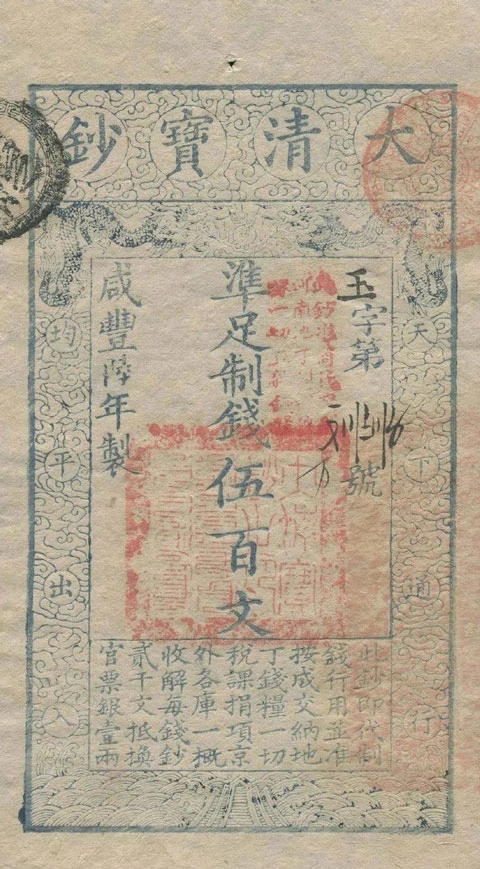 大清寶鈔
天下通行
玉字第
號
準足制錢伍百文
咸豐陸年製
均平出入
此鈔即代制
錢行用並准
按成交納地
丁錢糧一切
稅課捐項京
外各庫一概
收解每錢鈔
貳千文抵換
官票銀壹兩